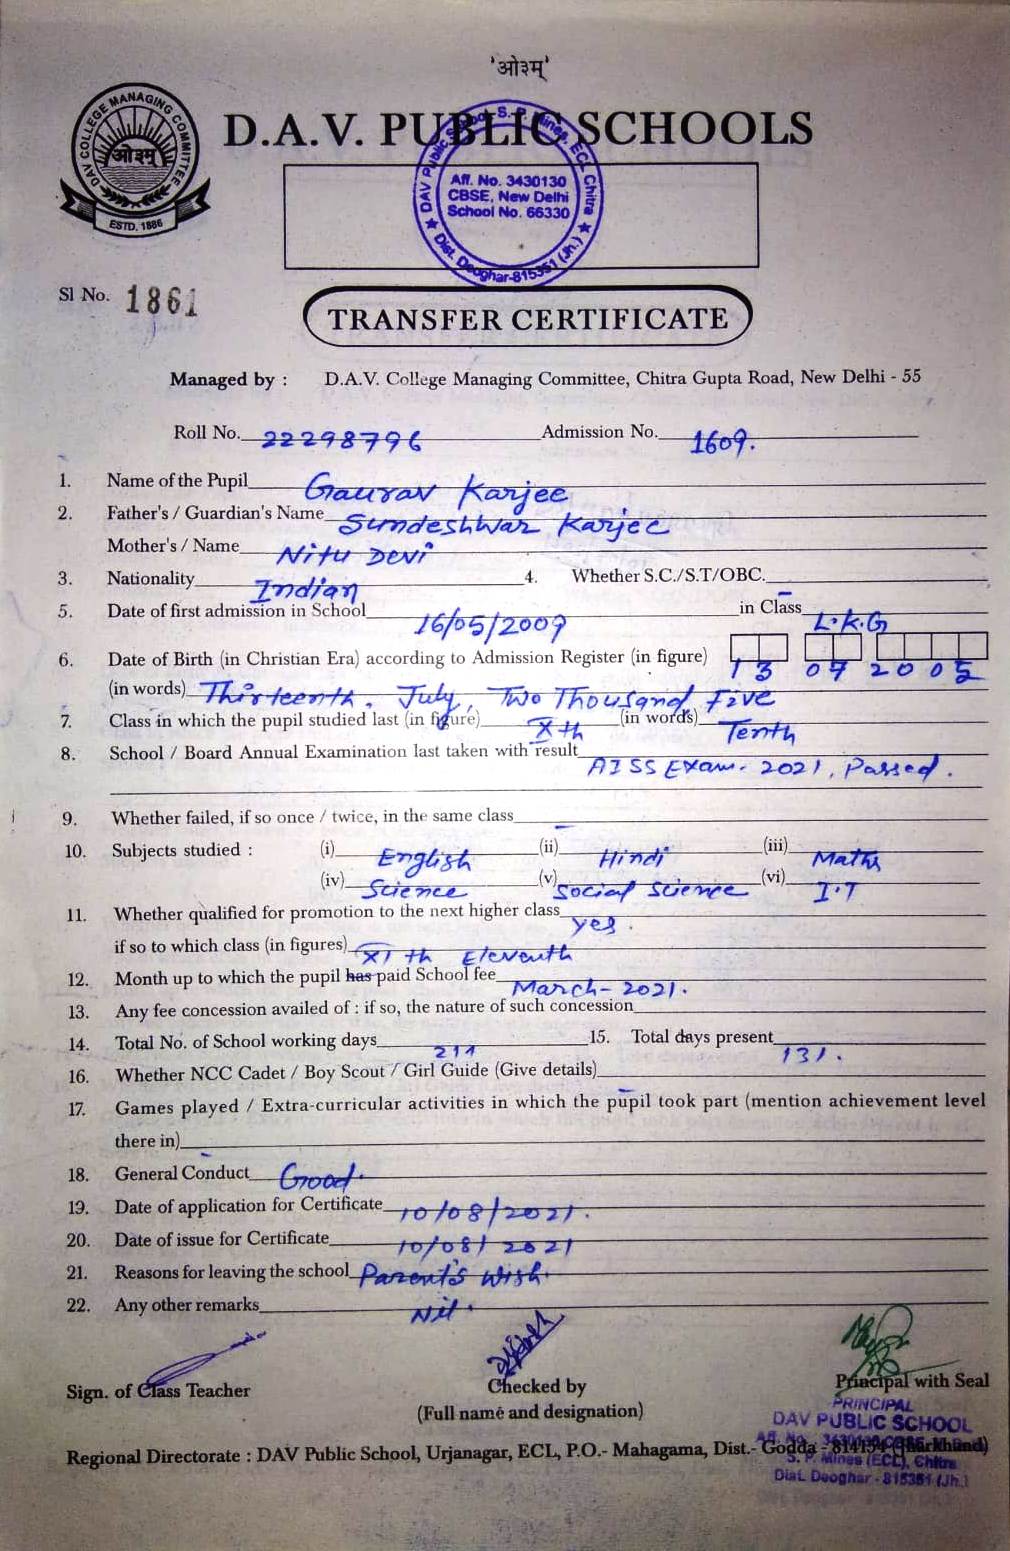 'ओ३म्'
DAV COLLEGE MANAGING COMMITTEE
ओ३म्
ESTD. 1886
D.A.V. PUBLIC SCHOOLS
DAV Public School S. P. Mines, ECL Chitra
Aff. No. 3430130
CBSE, New Delhi
School No. 66330
Dist. Deoghar-815351 (Jh.)
Sl No. 1861
TRANSFER CERTIFICATE
Managed by : D.A.V. College Managing Committee, Chitra Gupta Road, New Delhi - 55
Roll No. 22298796 Admission No. 1609.
1. Name of the Pupil Gaurav Karjee
2. Father's / Guardian's Name Sundeshwar Karjee
Mother's / Name Nitu Devi
3. Nationality Indian 4. Whether S.C./S.T/OBC. -
5. Date of first admission in School 16/05/2009 in Class L.K.G
6. Date of Birth (in Christian Era) according to Admission Register (in figure) 13 07 2005
(in words) Thirteenth, July, Two Thousand Five
7. Class in which the pupil studied last (in figure) Xth (in words) Tenth
8. School / Board Annual Examination last taken with result AISS Exam. 2021, Passed.
9. Whether failed, if so once / twice, in the same class -
10. Subjects studied : (i) English (ii) Hindi (iii) Maths
(iv) Science (v) Social Science (vi) I.T
11. Whether qualified for promotion to the next higher class yes.
if so to which class (in figures) XIth Eleventh
12. Month up to which the pupil has paid School fee March - 2021.
13. Any fee concession availed of : if so, the nature of such concession
14. Total No. of School working days 211 15. Total days present 131.
16. Whether NCC Cadet / Boy Scout / Girl Guide (Give details) -
17. Games played / Extra-curricular activities in which the pupil took part (mention achievement level
there in) -
18. General Conduct Good.
19. Date of application for Certificate 10/08/2021.
20. Date of issue for Certificate 10/08/2021
21. Reasons for leaving the school Parent's Wish.
22. Any other remarks Nil.
Sign. of Class Teacher
Checked by
(Full name and designation)
Principal with Seal
PRINCIPAL
DAV PUBLIC SCHOOL
Regional Directorate : DAV Public School, Urjanagar, ECL, P.O.- Mahagama, Dist.- Godda - 814154 (Jharkhand)
S. P. Mines (ECL), Chitra
Dist. Deoghar - 815351 (Jh.)